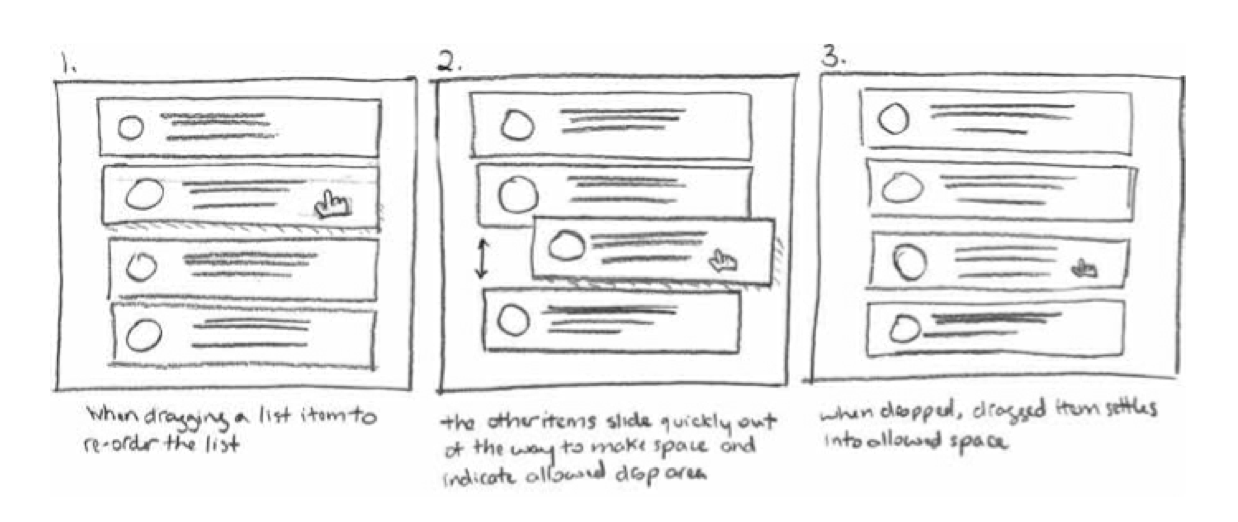 1.
2.
3.
When dragging a list item to
re-order the list
the other items slide quickly out
of the way to make space and
indicate allowed drop area
when dropped, dragged item settles
into allowed space